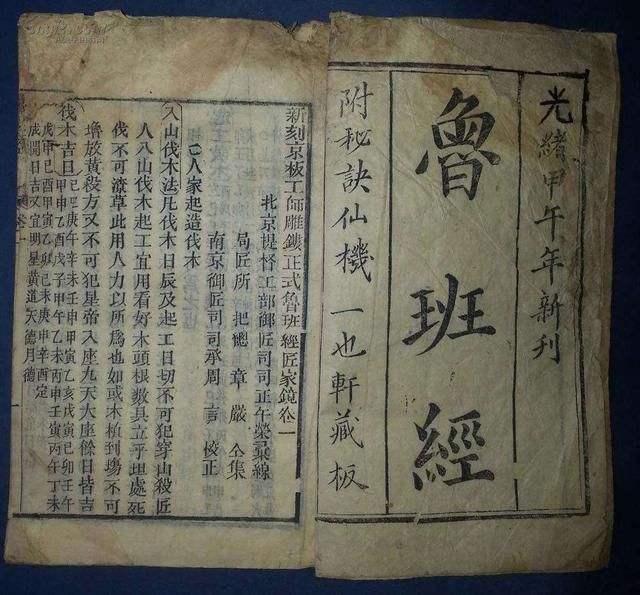 光緒甲午年新刊
魯班經
附秘訣仙機 一也軒藏板
新刻京板工師雕鏤正式魯班經匠家鏡卷一
北京提督工部御匠司司正午榮彙線
局匠所把總章嚴仝集
南京御匠司司承周言校正
人家起造伐木
入山伐木法凡伐木日辰及起工日切不可犯穿山殺匠
人入山伐木起工宜用看好木頭根數具立平坦處
伐不可潦草此用人力以所爲也如或木植到塲不可
堆放黃殺方又不可犯皇帝八座九天大座餘日皆吉
伐木吉日
己巳庚午辛未壬申甲寅乙亥戊寅己卯壬午
甲申乙酉戊子甲午乙未丙申壬寅丙午丁未
戊申己酉甲寅乙卯己未庚申辛酉定
成開日吉又宜明星黃道天德月德